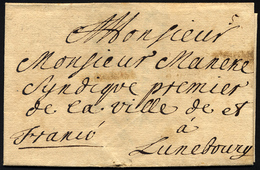 Monsieur
Monsieur Maneke
Syndique premier
de la ville de et
à
Franco
Lunebourg